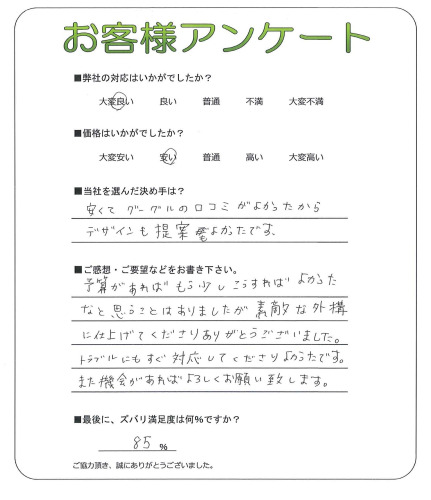 お客様アンケート
■弊社の対応はいかがでしたか?
大変良い 良い 普通 不満 大変不満
■価格はいかがでしたか?
大変安い 安い 普通 高い 大変高い
■当社を選んだ決め手は?
安くて グーグルの口コミがよかったから
デザインも提案もよかったです。
■ご感想・ご要望などをお書き下さい。
予算があれば もう少しこうすれば よかった
なと思うことはありましたが 素敵な外構
に仕上げてくださりありがとうございました。
トラブルにもすぐ対応してくださりよかったです。
また機会があればよろしくお願い致します。
■最後に、ズバリ満足度は何%ですか?
85 %
ご協力頂き、誠にありがとうございました。